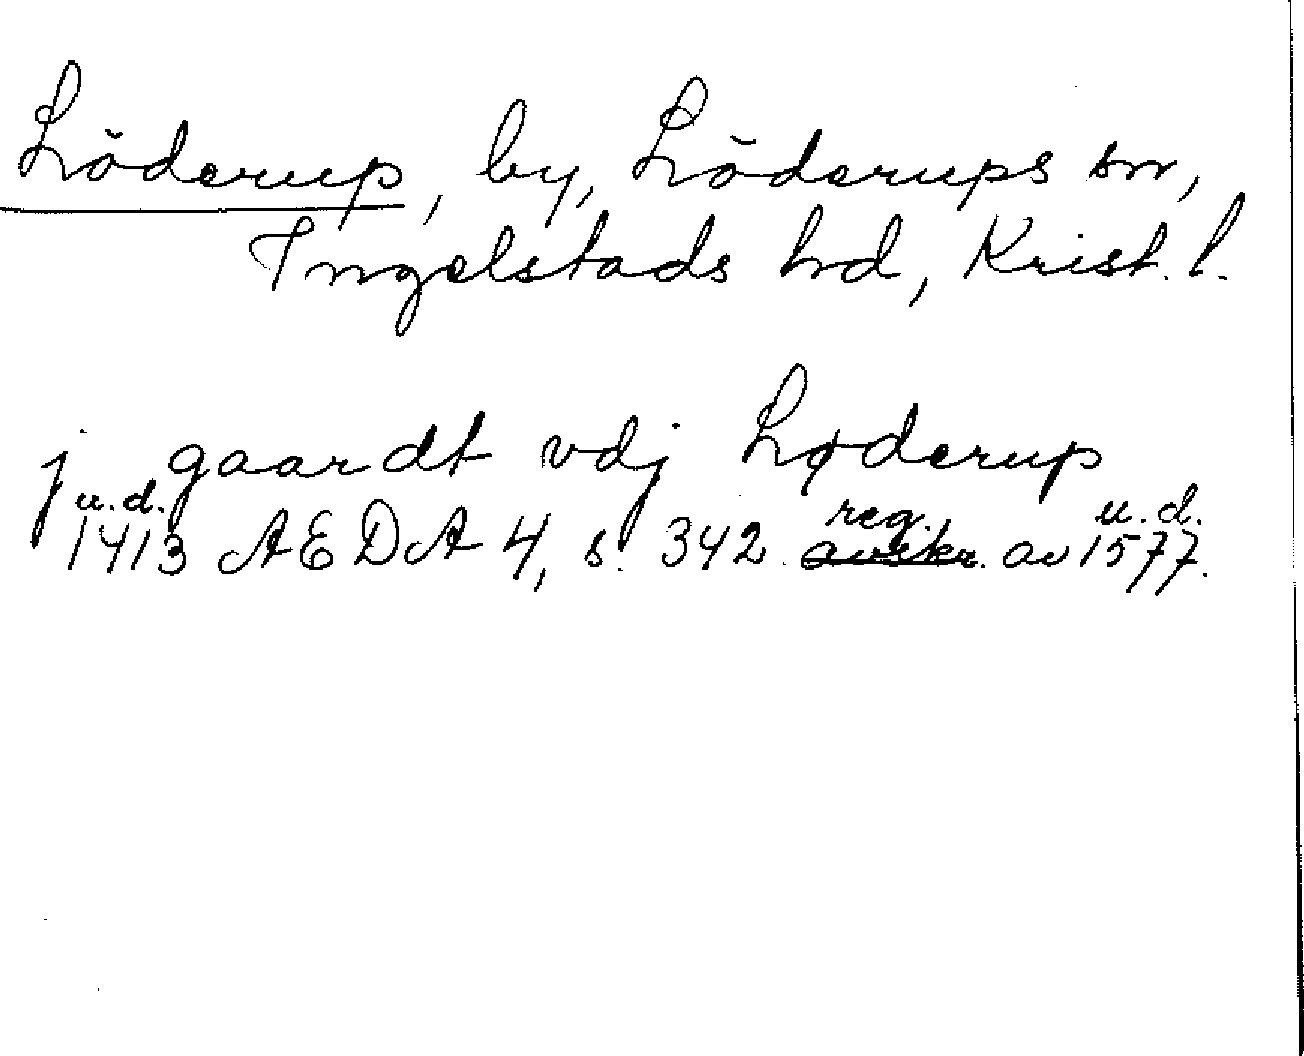 Löderup, by, Löderups sn,
Ingelstads hd, Krist. l.
j gaardt vdj Løderup
u.d. reg. u.d.
1413 AEDA 4, s. 342. avskr. av 1577.